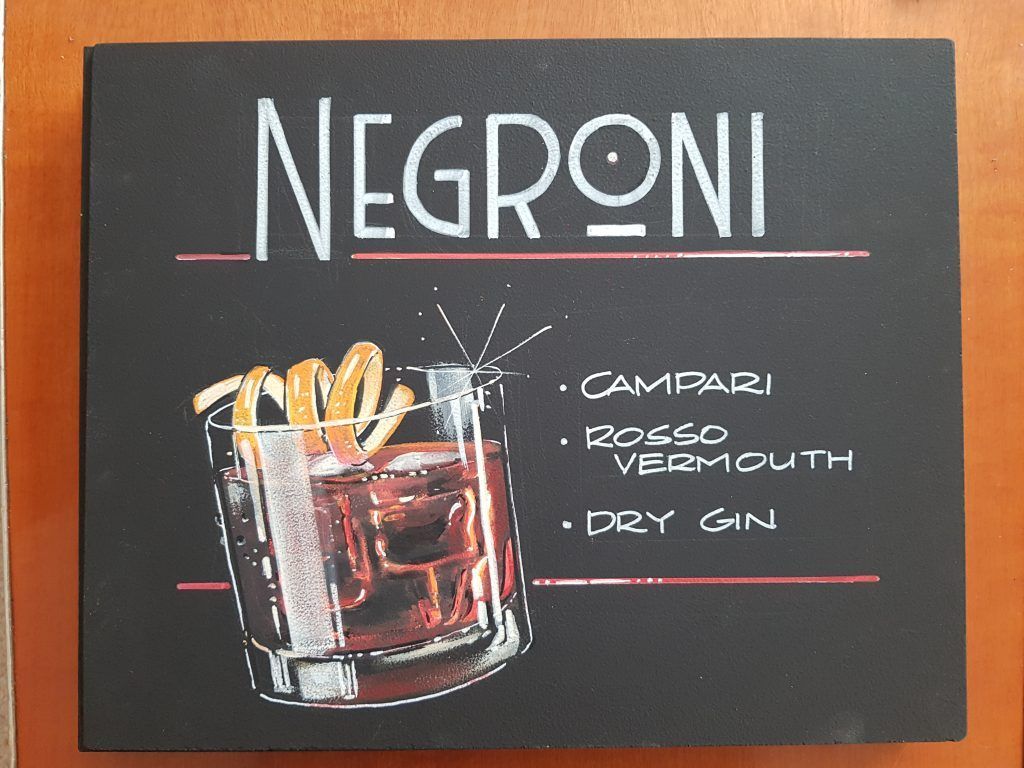 NEGRONI
• CAMPARI
• ROSSO
VERMOUTH
• DRY GIN